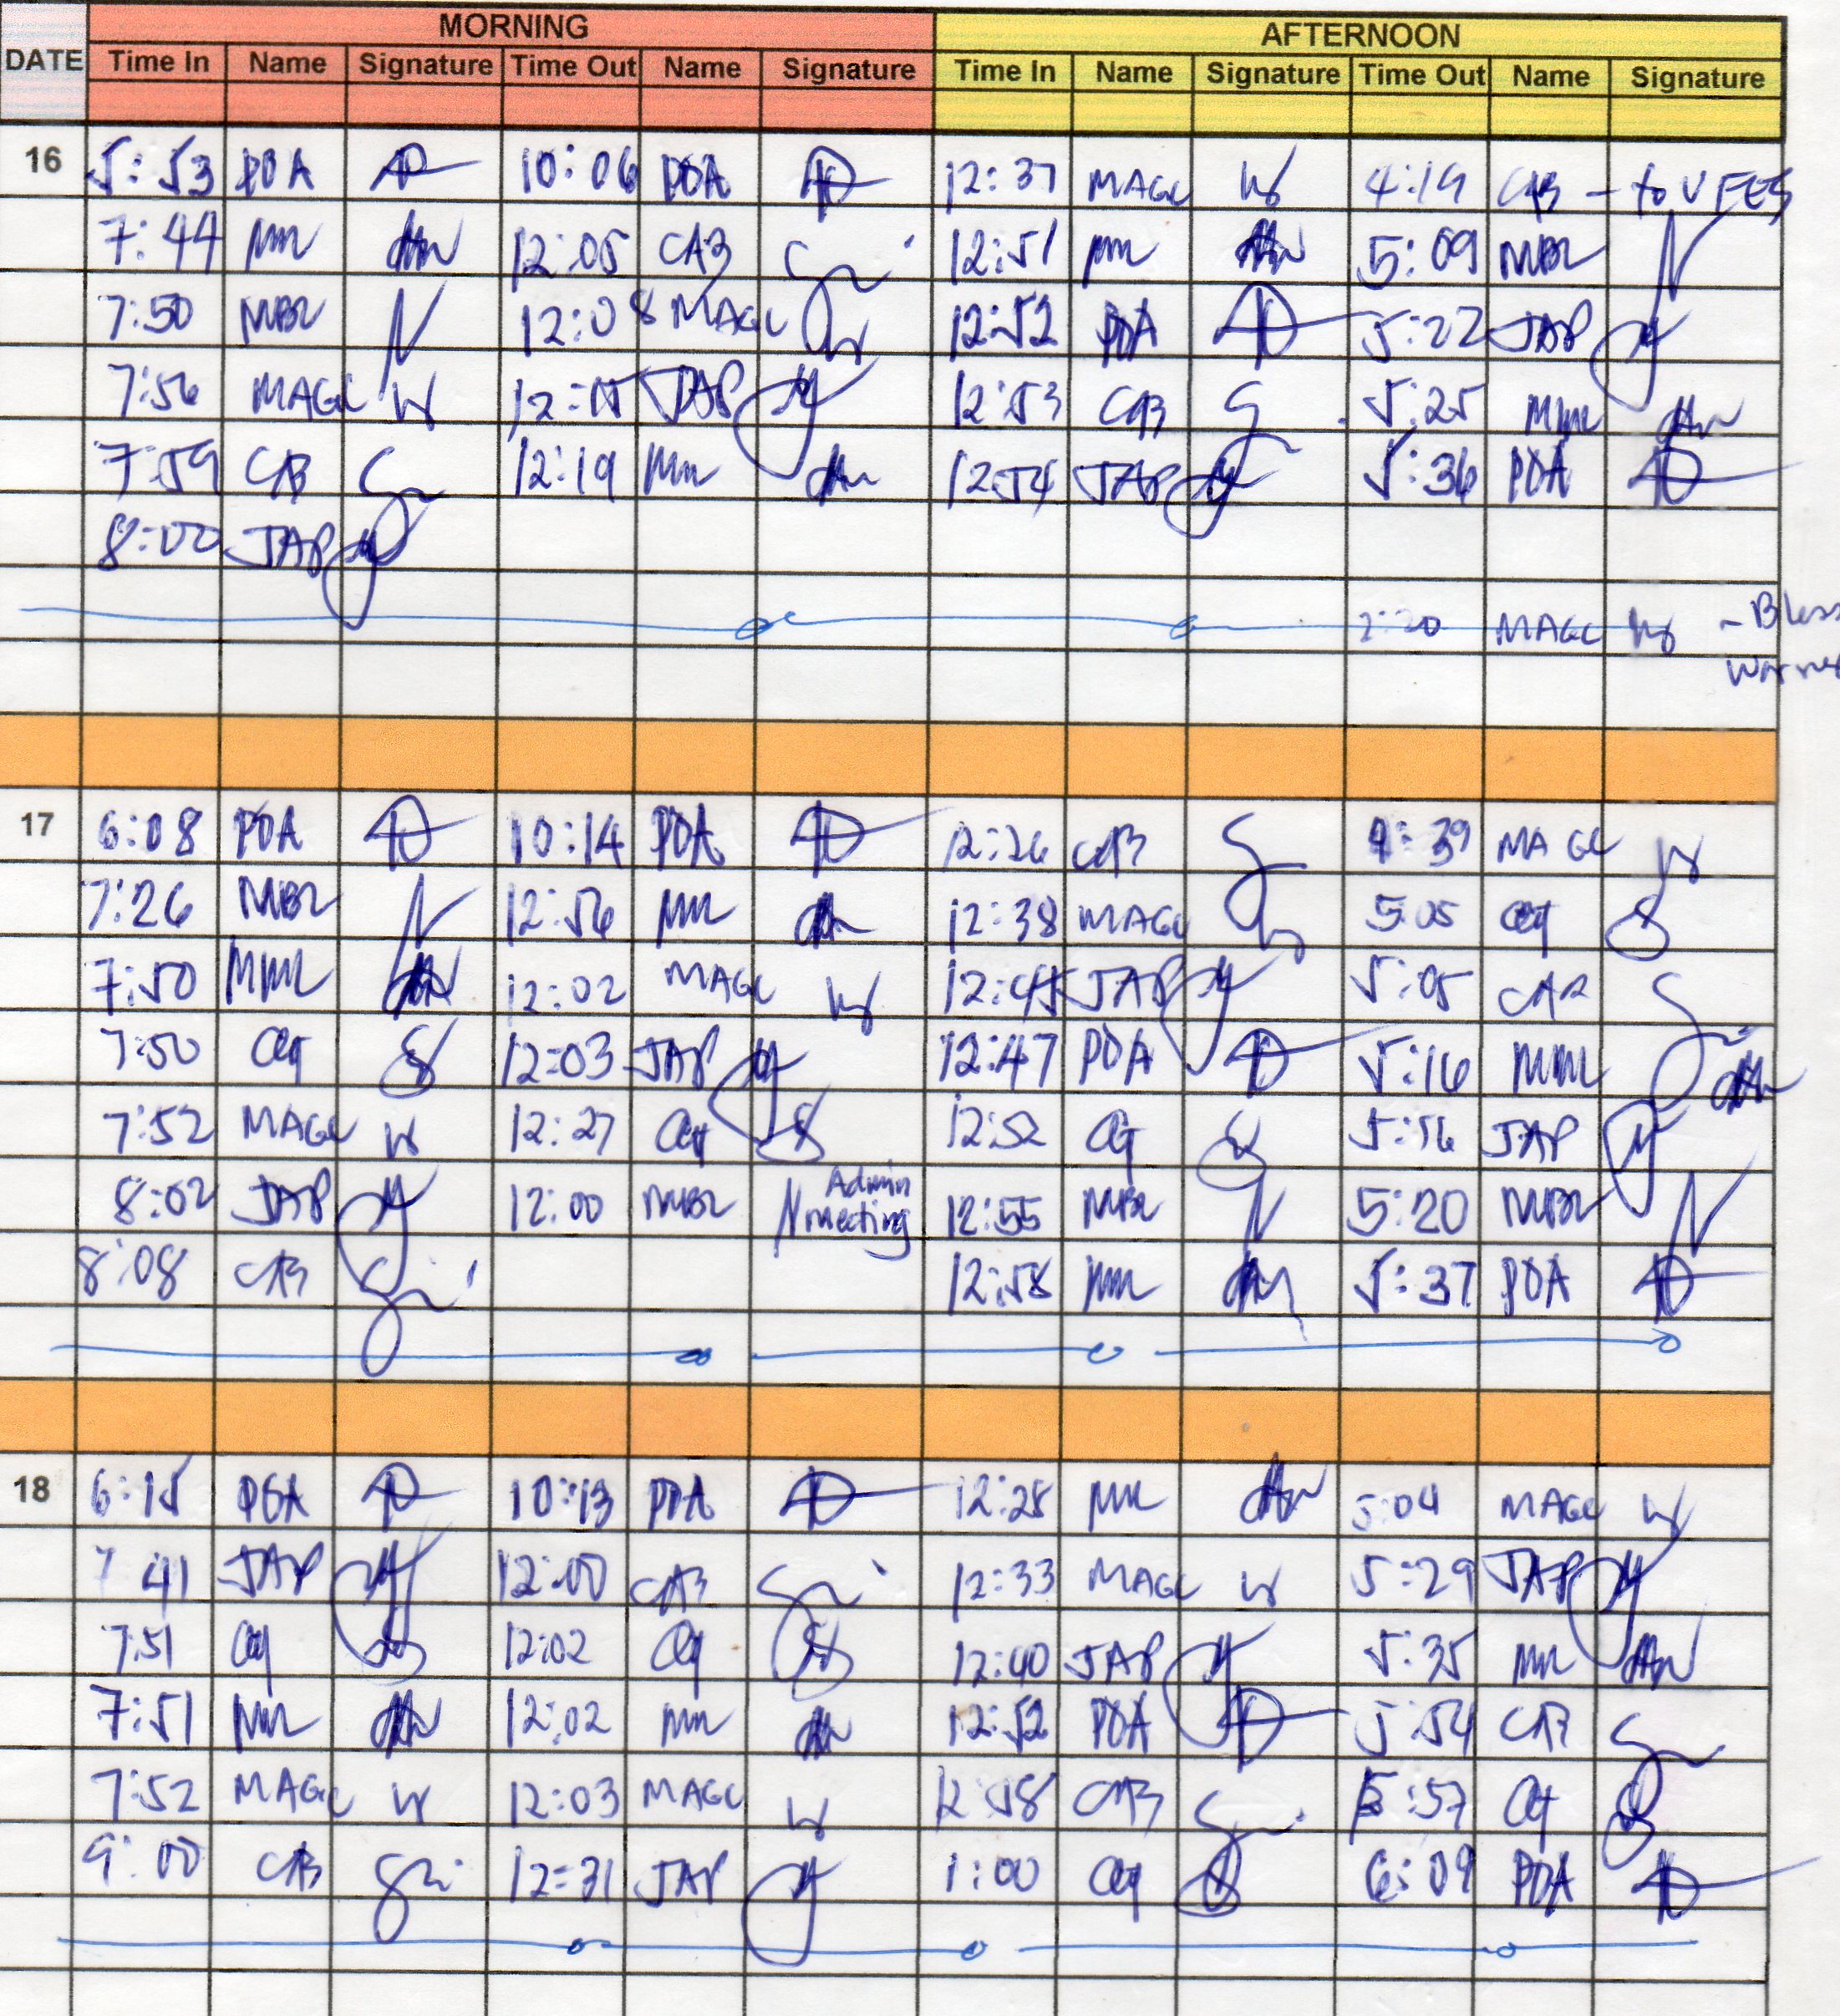 MORNING AFTERNOON
DATE Time In Name Signature Time Out Name Signature Time In Name Signature Time Out Name Signature
16 5:53 PDA 10:06 PDA 12:37 MAGC 4:19 CAB - to VFES
7:44 MM 12:05 CAB 12:51 MM 5:09 MBR
7:50 MBR 12:08 MAGC 12:52 PDA 5:22 JAP
7:56 MAGC 12:15 JAP 12:53 CAB 5:25 MML
7:59 CAB 12:19 MM 12:54 JAP 5:36 PDA
8:00 JAP
2:20 MAGC - Bless
17 6:08 PDA 10:14 PDA 12:26 CAB 4:39 MAGC
7:26 MBR 12:56 MM 12:38 MAGC 5:05
7:50 MML 12:02 MAGC 12:45 JAP 5:05 CAB
7:50 12:03 JAP 12:47 PDA 5:16 MML
7:52 MAGC 12:27 12:52 5:16 JAP
8:02 JAP 12:00 MBR Admin meeting 12:55 MBR 5:20 MBR
8:08 CAB 12:58 MM 5:37 PDA
18 6:15 PDA 10:13 PDA 12:28 MM 5:04 MAGC
7 41 JAP 12:00 CAB 12:33 MAGC 5:29 JAP
7:51 12:02 12:40 JAP 5:35 MM
7:51 MM 12:02 MM 12:52 PDA 5:54 CAB
7:52 MAGC 12:03 MAGC 12:58 CAB 5:57
9:00 CAB 12:31 JAP 1:00 6:09 PDA